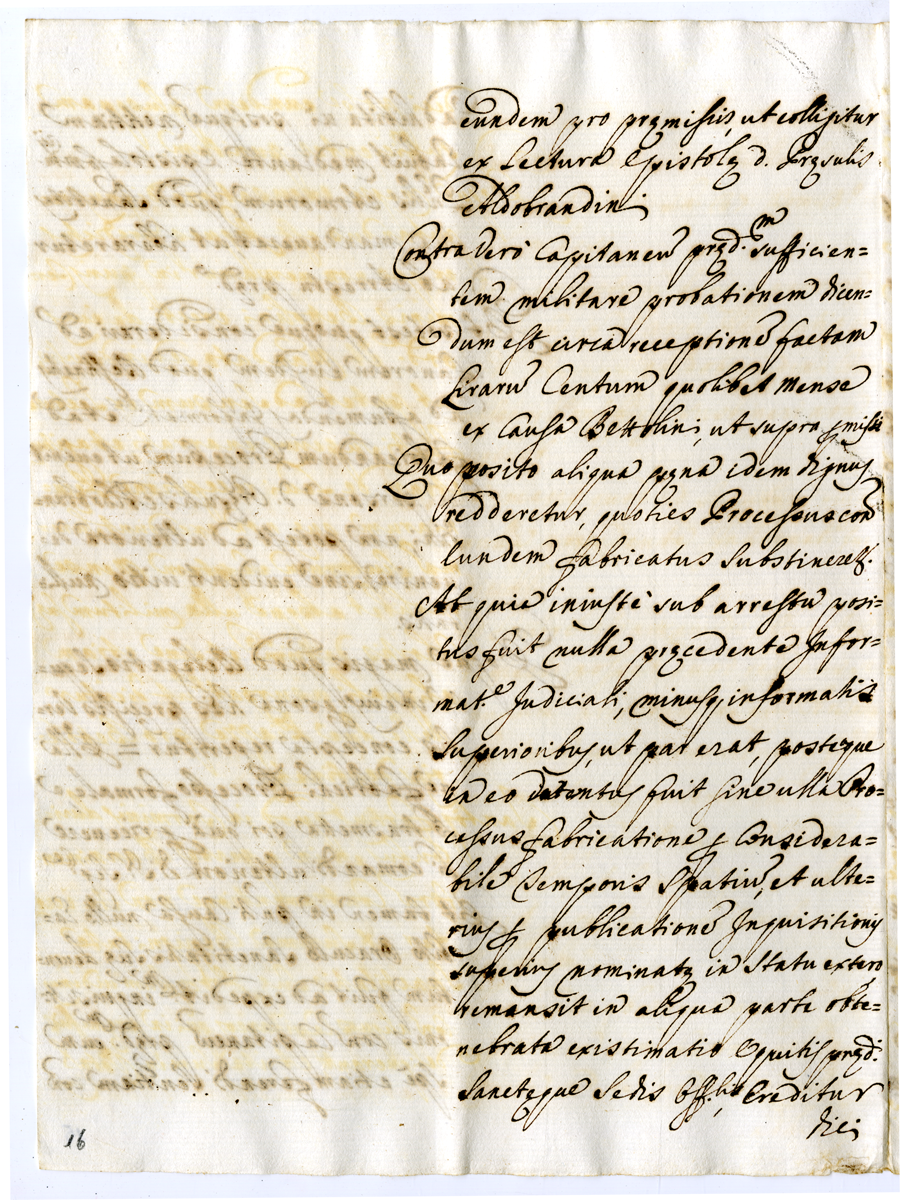 eundem pro pręmissis, ut colligitur
ex Lectura Epistolę d. Pręsulis
Aldobrandini
Contra Verò Capitaneũ pręd.m sufficien=
tem militare probationem dicen=
dum est circa receptionẽ factam
Lirarũ Centum quolibet Mense
ex Causa Bettolini, ut supra
Quo posito aliqua pęna idem dignus
redderetur, quoties Processus con
eundem fabricatus substineret.
At quia iniustè sub arrestu posi=
tus fuit nulla pręcedente Infor=
mat.e Judiciali, minusq, informatis
Superioribus, ut par erat, posteque
in eo detentus fuit sine ulla Pro=
cessus fabricatione ꝑ Considera=
bile Temporis Spatiũ, et ulte=
rius ꝑ publicationẽ Inquisitionis
superius nominatę in Statu extero
remansit in aliqua parte obte=
nebrata existimatio Equitis pręd.
Sanctęque Sedis Off.lis Creditur
dici
16